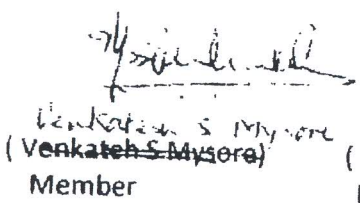 Venkatesh S Mysore
( Venkateh S Mysore) (
Member